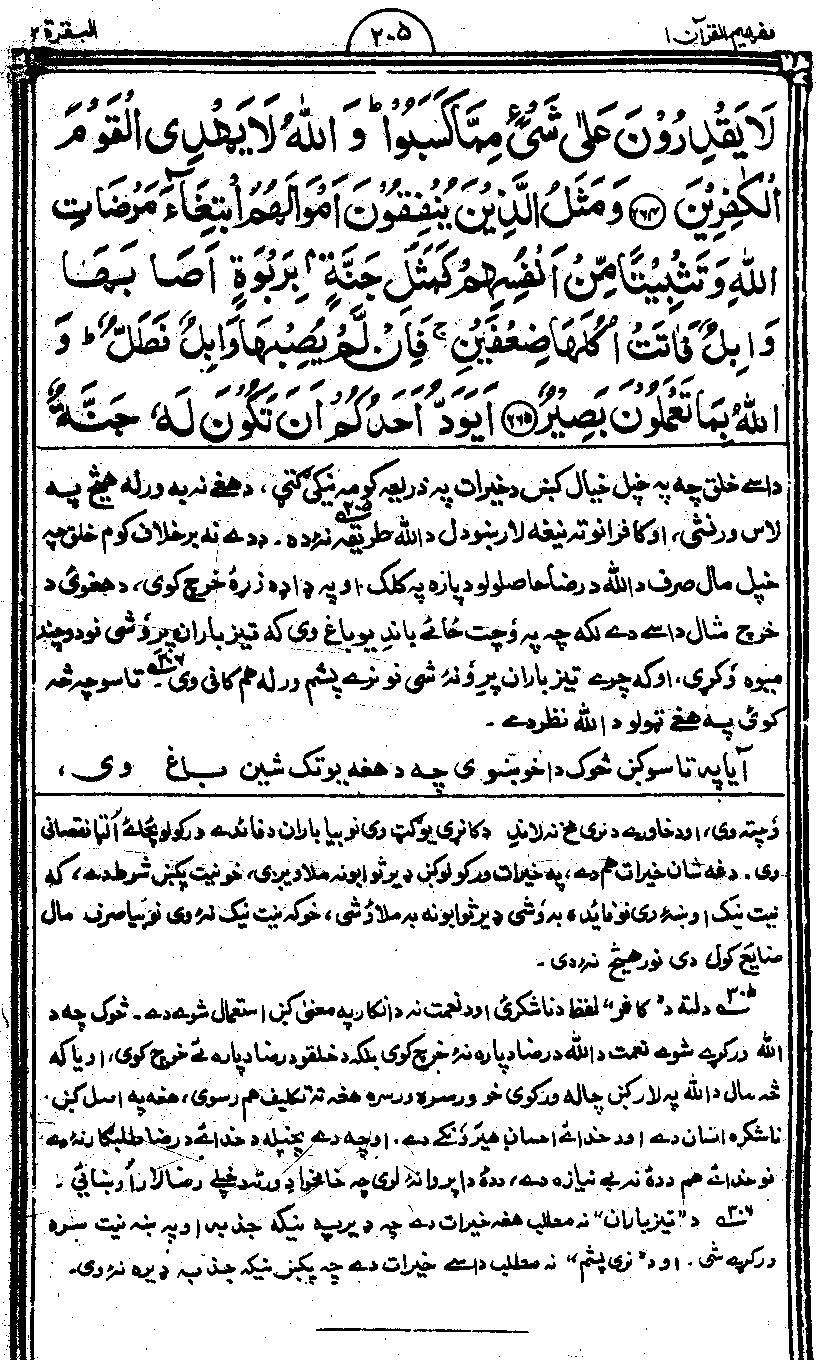 تفهیم القرآن ۱ ۲۰۵ البقرة ۲
لَا يَقْدِرُوْنَ عَلٰى شَىْءٍ مِّمَّا كَسَبُوْا ؕ وَ اللّٰهُ لَا يَهْدِى الْقَوْمَ
الْكٰفِرِيْنَ ﴿۲۶۴﴾ وَ مَثَلُ الَّذِيْنَ يُنْفِقُوْنَ اَمْوَالَهُمُ ابْتِغَآءَ مَرْضَاتِ
اللّٰهِ وَ تَثْبِيْتًا مِّنْ اَنْفُسِهِمْ كَمَثَلِ جَنَّةٍۭ بِرَبْوَةٍ اَصَابَهَا
وَابِلٌ فَاٰتَتْ اُكُلَهَا ضِعْفَيْنِ ۚ فَاِنْ لَّمْ يُصِبْهَا وَابِلٌ فَطَلٌّ ؕ وَ
اللّٰهُ بِمَا تَعْمَلُوْنَ بَصِيْرٌ ﴿۲۶۵﴾ اَيَوَدُّ اَحَدُكُمْ اَنْ تَكُوْنَ لَهٗ جَنَّةٌ
داسے خلق چه په خپل خیال کښ د خیرات په ذریعه کومه نیکی ګټی، د هغے نه به ورله هیڅ په
لاس ورنشی، او کافرانو ته نیغه لار ښودل د الله طریقه نۀ ده۔ ۳۰۵ ددے نه برخلاف کوم خلق چه
خپل مال صرف د الله د رضا حاصلولو دپاره په کلک او په ډاډه زړۀ خرچ کوی، د هغوئ د
خرچ مثال داسے دے لکه چه په وُچت ځائے باندِ یو باغ وی که تیز باران پرِ وُشی نو دوچند
میوه وُکړی، او که چرے تیز باران پرِ وُنۀ شی نو نرے پشم ورله هم کافی وی ۳۰۶۔ تاسو چه څه
کوئ په هغے ټولو د الله نظر دے۔
آیا په تاسو کښ څوک دا خوښوی چه د هغه یو تک شین باغ وی،
وُچته وی، او د خاورے د نری مخ نه لاندِ د کانړی یو ګټ وی نو بیا باران د فائدے د رکولو پځائے اُلټا نقصانی
وی۔ دغه شان خیرات هم دے، په خیرات ورکولو کښ ډیر ثوابونه ملاویږی، خو نیت پکښ شرط دے، که
نیت نیک او ښۀ وی نو فائده، به وُشی ډیر ثوابونه به ملاؤ شی، خو که نیت نیک نۀ وی نو بیا صرف مال
ضایع کول دی نور هیڅ نۀ دی۔
۳۰۵ دلته د "کافر" لفظ د ناشکرئ او د نعمت نه د انکار په معنیٰ کښ استعمال شوے دے۔ څوک چه د
الله ورکړے شوے نعمت د الله د رضا دپاره نۀ خرچ کوی بلکه د خلقو د رضا دپاره ئے خرچ کوی، او یا که
څه مال د الله په لار کښ چاله ورکوی خو ورسره ورسره هغه ته تکلیف هم رسوی، هغه په اصل کښ
ناشکره انسان دے او د خدائے احسان هیرَوُنکے دے۔ او چه دے پخپله د خدائے د رضا طلبګار نۀ دے
نو خدائے هم ددۀ نه بے نیازه دے، ددۀ دا پروا نۀ لری چه خامخواه ورته د خپلے رضا لار اُو ښائی۔
۳۰۶ د "تیز باران" نه مطلب هغه خیرات دے چه ډیر په نیکه جذبه او په ښه نیت سره
ورکړے شی۔ او د "نری پشم" نه مطلب داسے خیرات دے چه پکښ نیکه جذبه ډیره نۀ وی۔